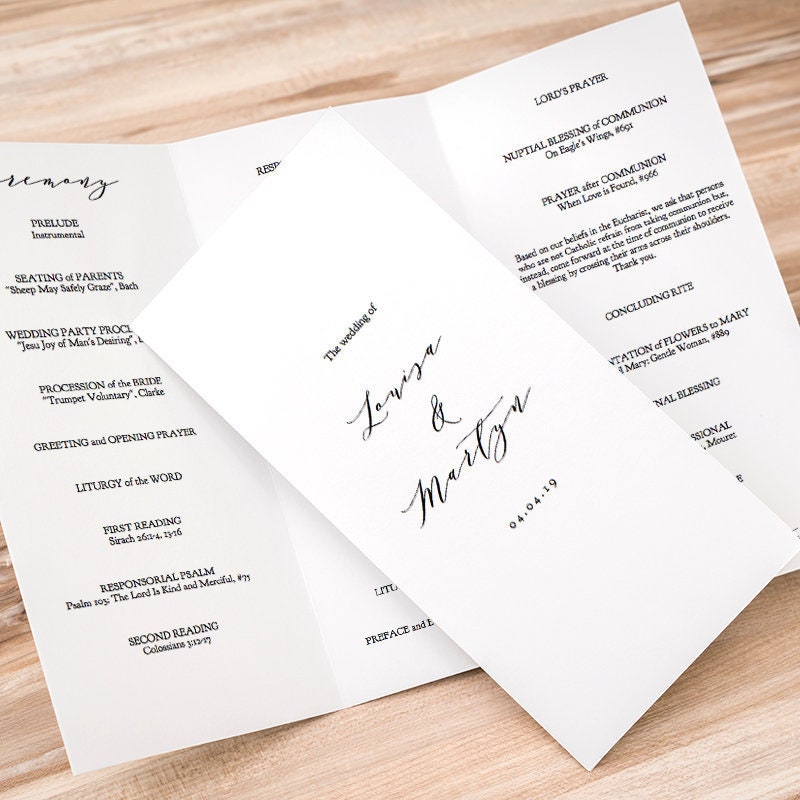 PRELUDE
Instrumental
SEATING of PARENTS
"Sheep May Safely Graze", Bach
WEDDING PARTY
"Jesu Joy of Man's Desiring",
PROCESSION of the BRIDE
"Trumpet Voluntary", Clarke
GREETING and OPENING PRAYER
LITURGY of the WORD
FIRST READING
Sirach 26:1-4, 13-16
RESPONSORIAL PSALM
Psalm 103; The Lord Is Kind and Merciful, #75
SECOND READING
Colossians 3:12-17
PREFACE and
The wedding of
Louisa
&
Martyn
04.04.19
LORD'S PRAYER
NUPTIAL BLESSING of COMMUNION
On Eagle's Wings, #691
PRAYER after COMMUNION
When Love is Found, #966
Based on our beliefs in the Eucharist, we ask that persons
who are not Catholic refrain from taking communion but,
instead, come forward at the time of communion to receive
a blessing by crossing their arms across their shoulders.
Thank you.
CONCLUDING RITE
of FLOWERS to MARY
Mary: Gentle Woman, #889
BLESSING